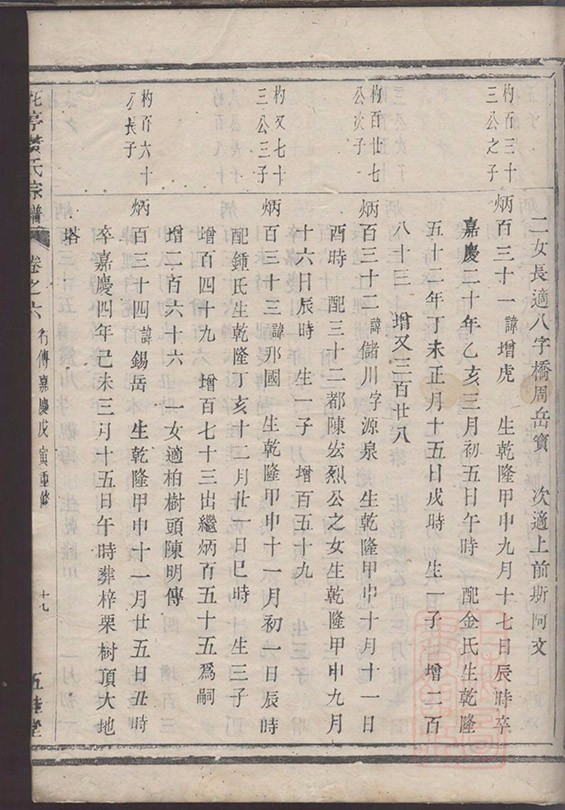 二女長適八字橋周岳寶　次適上前斯阿文
杓百三十
三公之子
炳百三十一諱增虎　生乾隆甲申九月十七日辰時卒
嘉慶二十年乙亥三月初五日午時　配金氏生乾隆
五十二年丁未正月十五日戌時　生二子　增二百
八十三　增又二百廿八
杓百廿七
公次子
炳百三十二諱儲川字源泉　生乾隆甲申十月十一日
酉時　配三十二都陳宏烈公之女生乾隆甲申九月
十六日辰時　生一子　增百五十九
杓又七十
三公三子
炳百三十三諱邦國　生乾隆甲申十一月初一日辰時
配鍾氏生乾隆丁亥十二月廿一日巳時　生三子
增百四十九　增百七十三出繼炳百五十五爲嗣
增二百六十六　一女適柏樹頭陳明傳
杓百六十
公長子
炳百三十四諱錫岳　生乾隆甲申十一月廿五日丑時
卒嘉慶四年己未三月十五日午時葬梓栗樹頂大地
塔
亭黃氏宗譜　卷之六　行傳嘉慶戊寅重修　十七　五桂堂